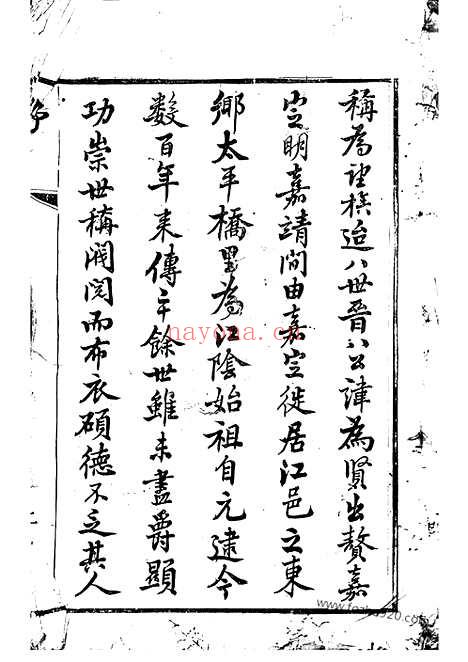 稱為望族迨八世晉八公諱為賢出贅嘉
定明嘉靖間由嘉定徙居江邑之東
鄉太平橋里為江陰始祖自元逮今
數百年来傳二十餘世雖未盡爵顯
功崇世稱閥閱而布衣碩德不乏其人
nayona.cn